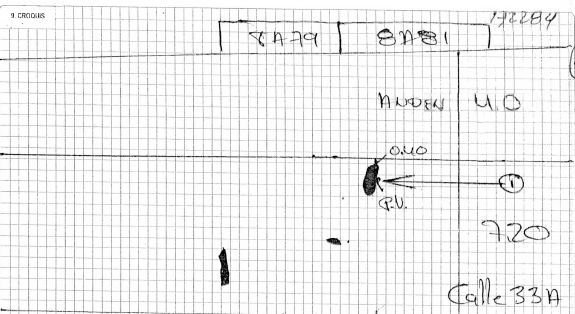 9. CROQUIS
172284
8A79 8A81
ANDEN 4.0
0.40
1
P.V.
7.20
Calle 33A